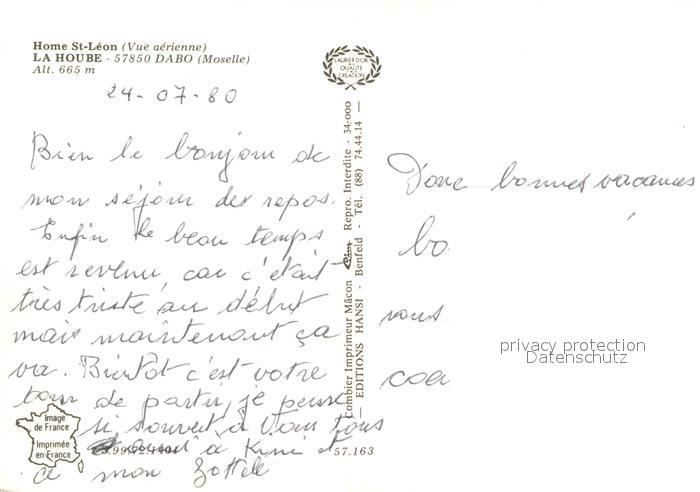 Home St-Léon (Vue aérienne)
LA HOUBE - 57850 DABO (Moselle)
Alt. 665 m
24-07-80
Bien le bonjour de
mon séjour de repos.
Enfin le beau temps
est revenu, car c'était
très triste au début
mais maintenant ça
va. Bientôt c'est votre
tour de partir, je pense
si souvent à vous tous
à Kini et
à mon
Image
de France
Imprimée
en France
57.163
LAURIER D'OR
DE LA
QUALITÉ
DE LA
CRÉATION
Combier Imprimeur Mâcon Cim Repro. Interdite - 34-000
— EDITIONS HANSI - Benfeld - Tél. (88) 74.44.14 —
Donc bonnes vacances
bo
vous
privacy protection
Datenschutz